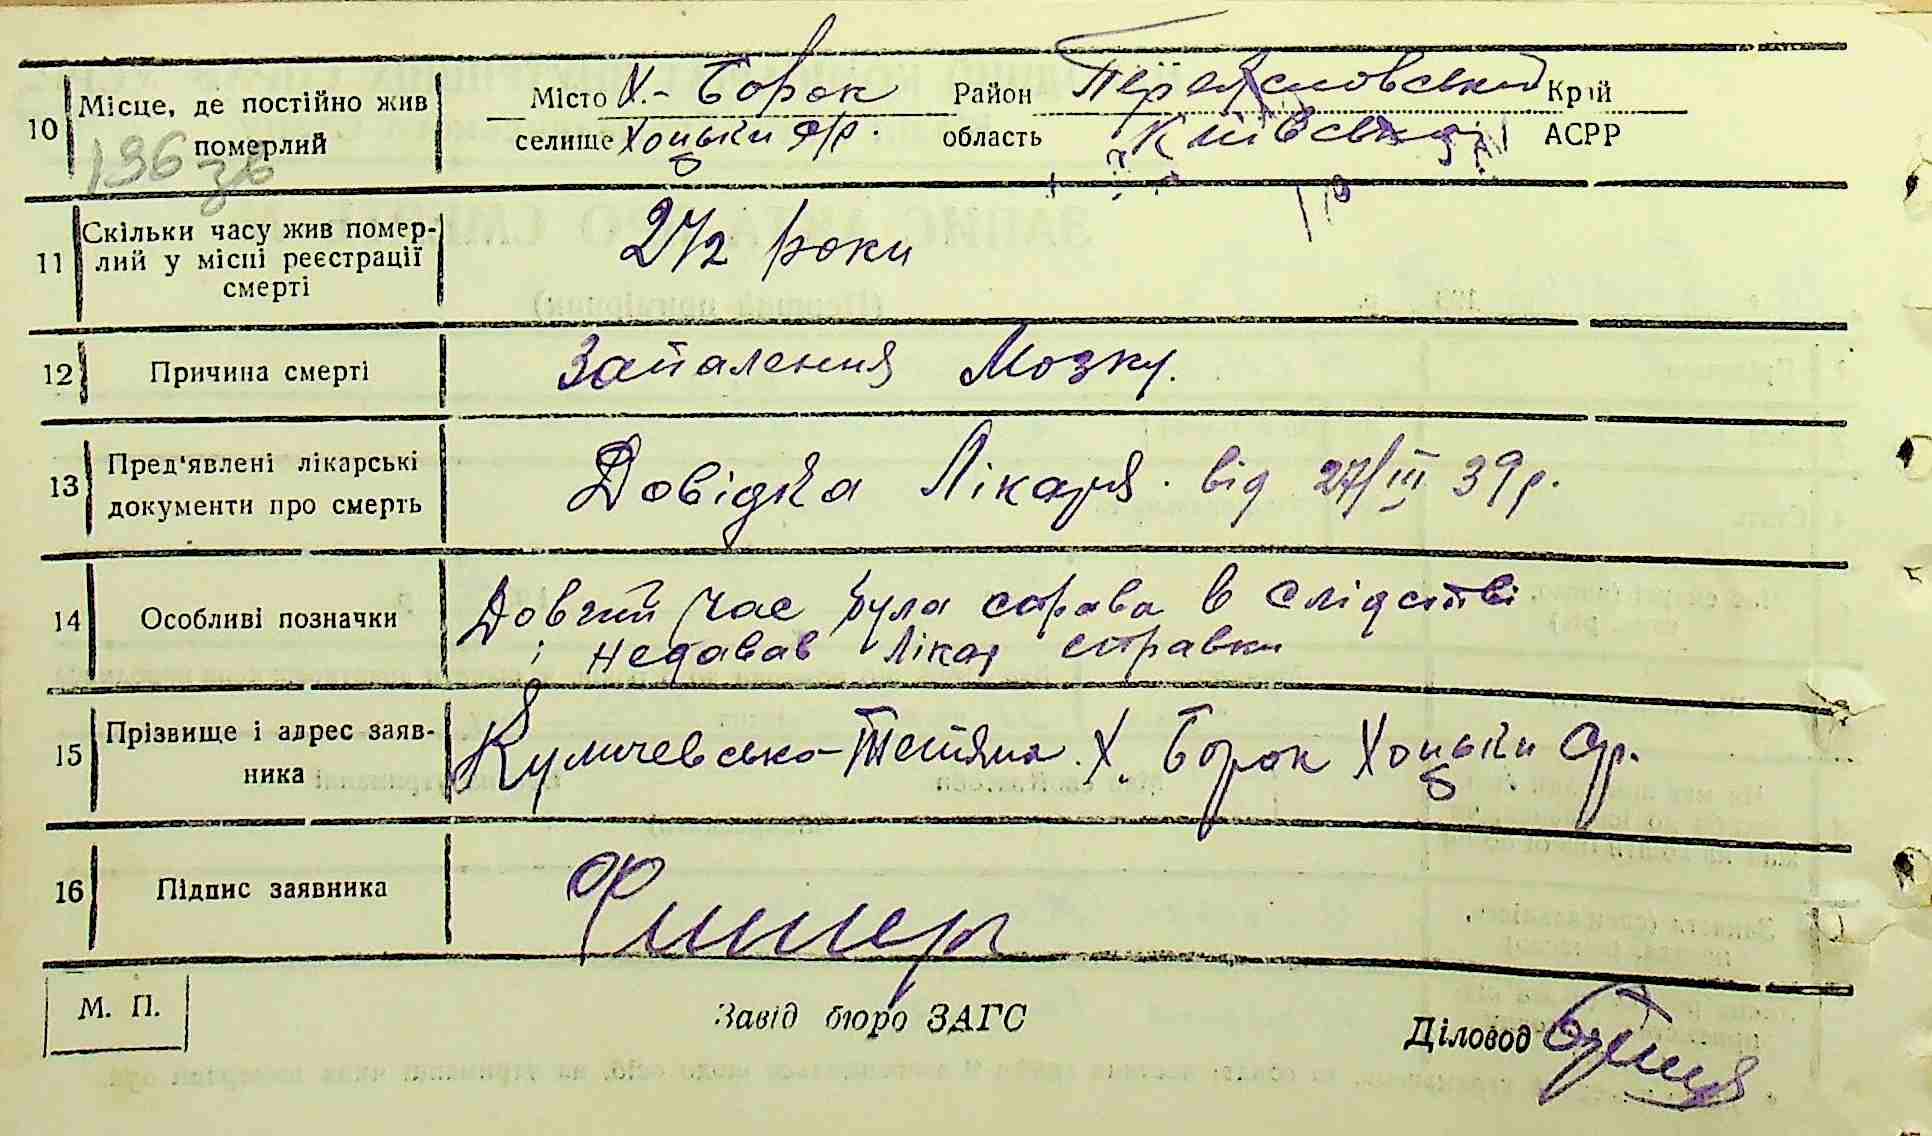 10 Місце, де постійно жив померлий
Місто Х.-Борок Район Переяславський Край
селище Хоцьки с/р. область Київська АСРР
136 зв
11 Скільки часу жив помер-
лий у місці реєстрації
смерті
2 1/2 роки
12 Причина смерті Запалення Мозку.
13 Пред'явлені лікарські
документи про смерть
Довідка Лікаря. від 27/III 39р.
14 Особливі позначки
Довгий час була справа в слідстві
і недавав лікар справки
15 Прізвище і адрес заяв-
ника
Тетяна. Х. Борок Хоцьки с/р.
16 Підпис заявника
М. П. Завід бюро ЗАГС Діловод